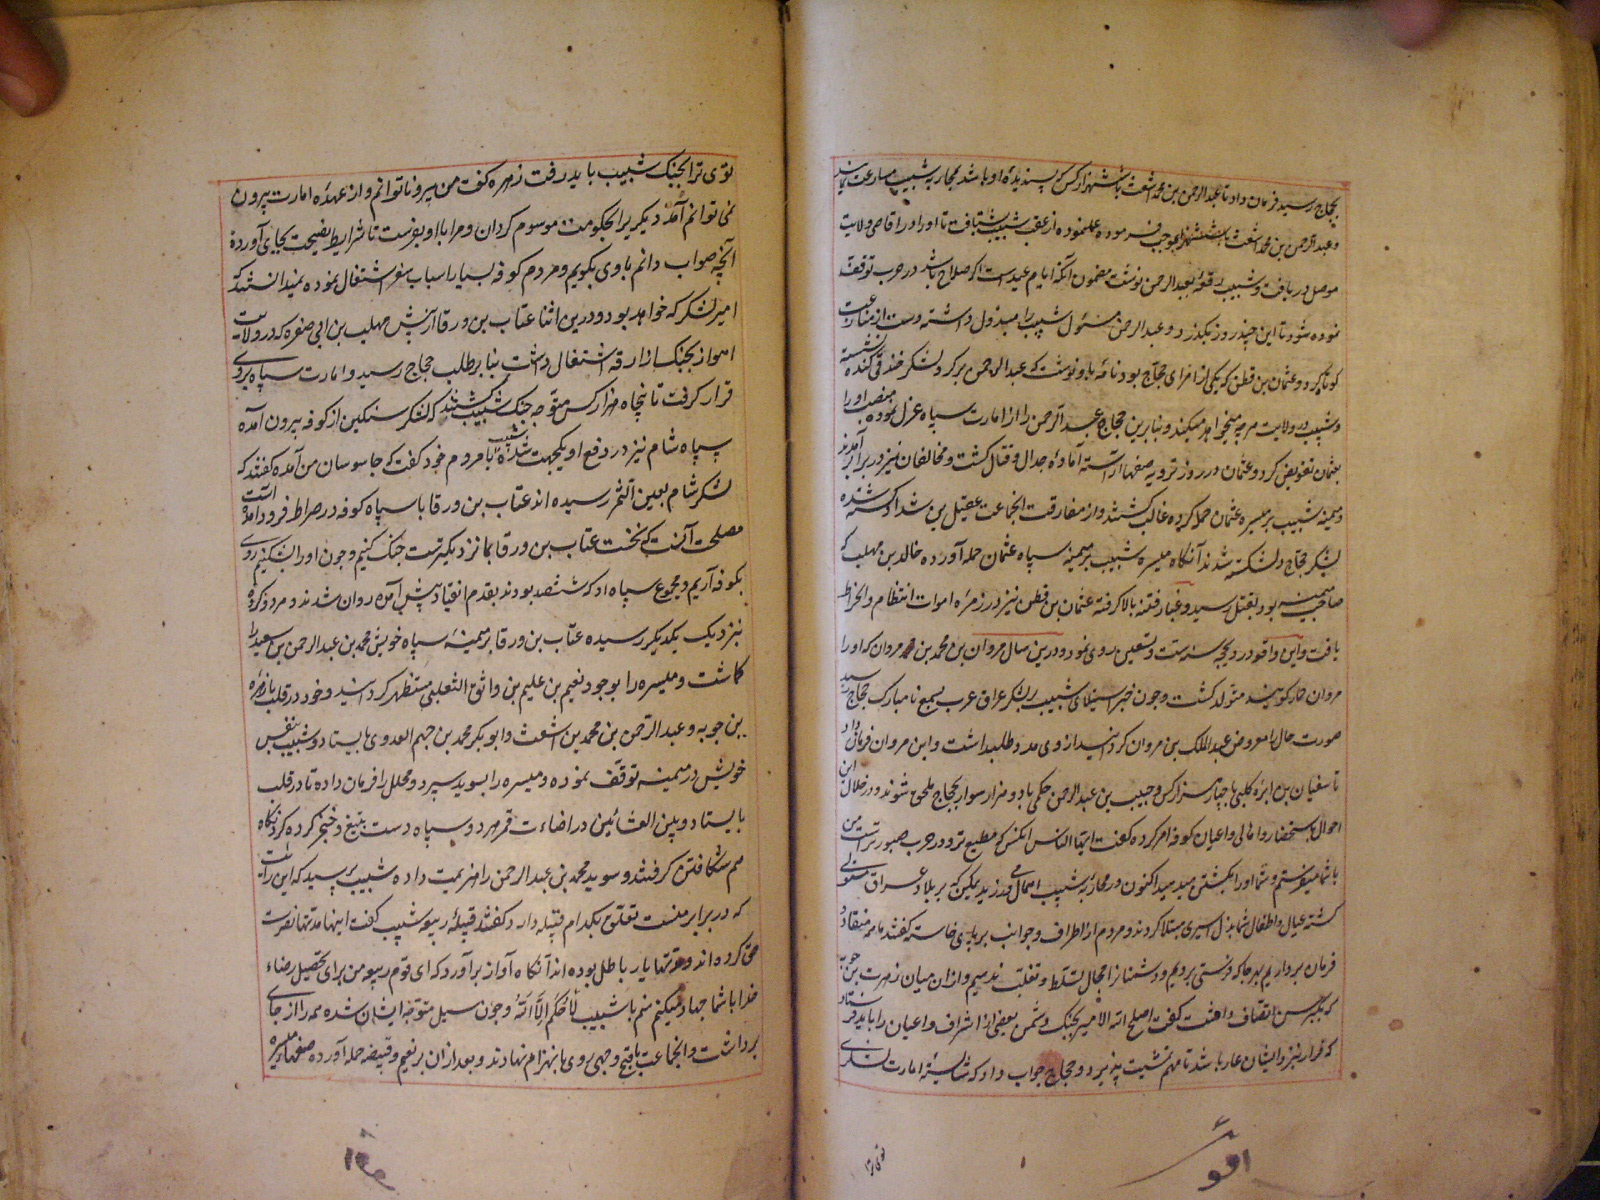 بحجاج رسید فرمان داد تا عبدالرحمن بن محمد اشعث با شش هزار کس که پسندیدهٔ او باشد بمحاربه شبیب مسارعت نماید
و عبدالرحمن بن محمد اشعث با شش هزار بموجب فرموده عمل نموده از عقب شبیب شتافت تا او را در اقاصی ولایت
موصل دریافت و شبیب رقعهٔ بعبدالرحمن نوشت مضمون آنکه ایام عیدست اگر صلاح باشد در حرب توقف
نموده شود تا این چند روز بگذرد و عبدالرحمن مسئول شبیب را مبذول داشته دست از منازعت
کوتاه کرد و عثمان بن قطن که یکی از امرای حجاج بود نامهٔ باو نوشت که عبدالرحمن بر گرد لشکر خندقی کنده نشسته
و شبیب در ولایت هرچه میخواهد میکند و بنابرین حجاج عبدالرحمن را از امارت سپاه عزل نموده منصب او را
بعثمان تفویض کرد و عثمان در روز ترویه صفها آراسته آمادهٔ جدال و قتال گشت و مخالفان نیز در برابر آمدند
و میمنهٔ شبیب بر میسرهٔ عثمان حمله کرده غالب گشتند و از مفارقت انجماعت عقیل بن شداد کشته شده
لشکر حجاج دلشکسته شدند آنگاه میسرهٔ شبیب بر میمنهٔ سپاه عثمان حمله آورده خالد بن مهلب که
صاحب میمنه بود بقتل رسید و غبار فتنه بالا گرفته عثمان بن قطن نیز در زمرهٔ اموات انتظام و انخراط
یافت و این واقعه در ذیحجه سنه ست و سبعین روی نمود و درین سال مروان بن محمد بن مروان که او را
مروان حمار گویند متولد گشت و چون خبر استیلای شبیب بر لشکر عراق عرب بسمع نامبارک حجاج رسید
صورت حال معروض عبدالملک بن مروان گردانیده از وی مدد طلبداشت و ابن مروان فرمان داد
تا سفیان بن ابرد کلبی با چهار هزار کس و حبیب بن عبدالرحمن حکمی با دو هزار سوار بحجاج ملحق شوند و در خلال این
احوال باستحضار اهالی و اعیان کوفه امر کرده گفت ایها الناس آنکس که مطیع تر و در حرب صبورتر است من
با شما میفرستم و شما او را بکشتن میدهید اکنون در محاربهٔ شبیب اهمال می ورزید یمکن که بر بلاد عراق مستولی
گشته عیال و اطفال شما بذل اسیری مبتلا گردند و مردم از اطراف و جوانب بر پای خاسته گفتند ما همه منقاد و
فرمان برداریم بهر جا که فرستی برویم و دشمنان را مجال تسلط و تغلب ندهیم و از ان میان زهرت بن حویه
که بکبر سن اتصاف داشت گفت اصلح الله الامیر بجنگ دشمن بعضی از اشراف و اعیان را باید فرستاد
که فرار نزد ایشان عار باشد تا مهم تمشیت پذیرد و حجاج جواب داد که شایستهٔ امارت لشکری
توی ترا
توی ترا بجنگ شبیب باید رفت زهره گفت من پیر و ناتوانم و از عهدهٔ امارت بیرون
نمی توانم آمد دیگری را بحکومت موسوم گردان و مرا با او بفرست تا شرایط نصیحت بجای آورده
آنچه صواب دانم با وی بگویم و مردم کوفه بسیار اسباب سفر اشتغال نموده نمیدانستند که
امیر لشکر که خواهد بود و درین اثنا عتاب بن ورقا از پیش مهلب بن ابی صفره که در ولایت
اهواز بجنگ ازارقه اشتغال داشت بنا بر طلب حجاج رسید و امارت سپاه بر وی
قرار گرفت تا پنجاه هزار کس متوجه جنگ شبیب گشتند که لشکر سنگین از کوفه بیرون آمده
سپاه شام نیز در دفع او یکجهت شده شبیب با مردم خود گفت که جاسوسان من آمده گفتند که
لشکر شام بعین التمر رسیده اند عتاب بن ورقا با سپاه کوفه در صراط فرود آمده است
مصلحت آنست که نخست عتاب بن ورقا بما نزدیکترست جنگ کنیم و چون او را بشکنیم روی
بکوفه آریم و مجموع سپاه او که ششصد بودند بقدم انقیاد پیش آمده روان شدند و هر دو گروه
نزدیک یکدیگر رسیده عتاب بن ورقا بر میمنهٔ سپاه خویش محمد بن عبدالرحمن بن سعید را
گماشت و میسره را بوجود نعیم بن علیم بن واثق الثعلبی مستظهر گردانید و خود در قلب با زهره
بن حویه و عبدالرحمن بن محمد بن اشعث و ابو بکر محمد بن جهم العدوی بایستاد و شبیب بنفس
خویش در میمنه توقف نموده و میسره را بسوید سپرد و محلل را فرمان داده تا در قلب
بایستاد و بین العشائین در اضاءت قمر هر دو سپاه دست بتیغ و خنجر کرده
هم شکافتن گرفتند و سوید محمد بن عبدالرحمن را هزیمت داده شبیب پرسید که این رایت
که در برابر منست تعلق بکدام قبیله دارد گفتند قبیلهٔ ربیعه شبیب گفت اینها مدتها نصرت
حق کرده اند و مدتها یار باطل بوده اند آنگاه آواز برآورد که ای قوم ربیعه من برای تحصیل رضاء
خدا با شما جهاد میکنم منم باشبیب لا حکم الا لله و چون سیل متوجه ایشان شده همه را از جای
برداشت و انجماعت باقبح وجهی روی بانهزام نهادند و بعد از ان بر نعیم و قبیصه حمله آورده صفهاء میسره